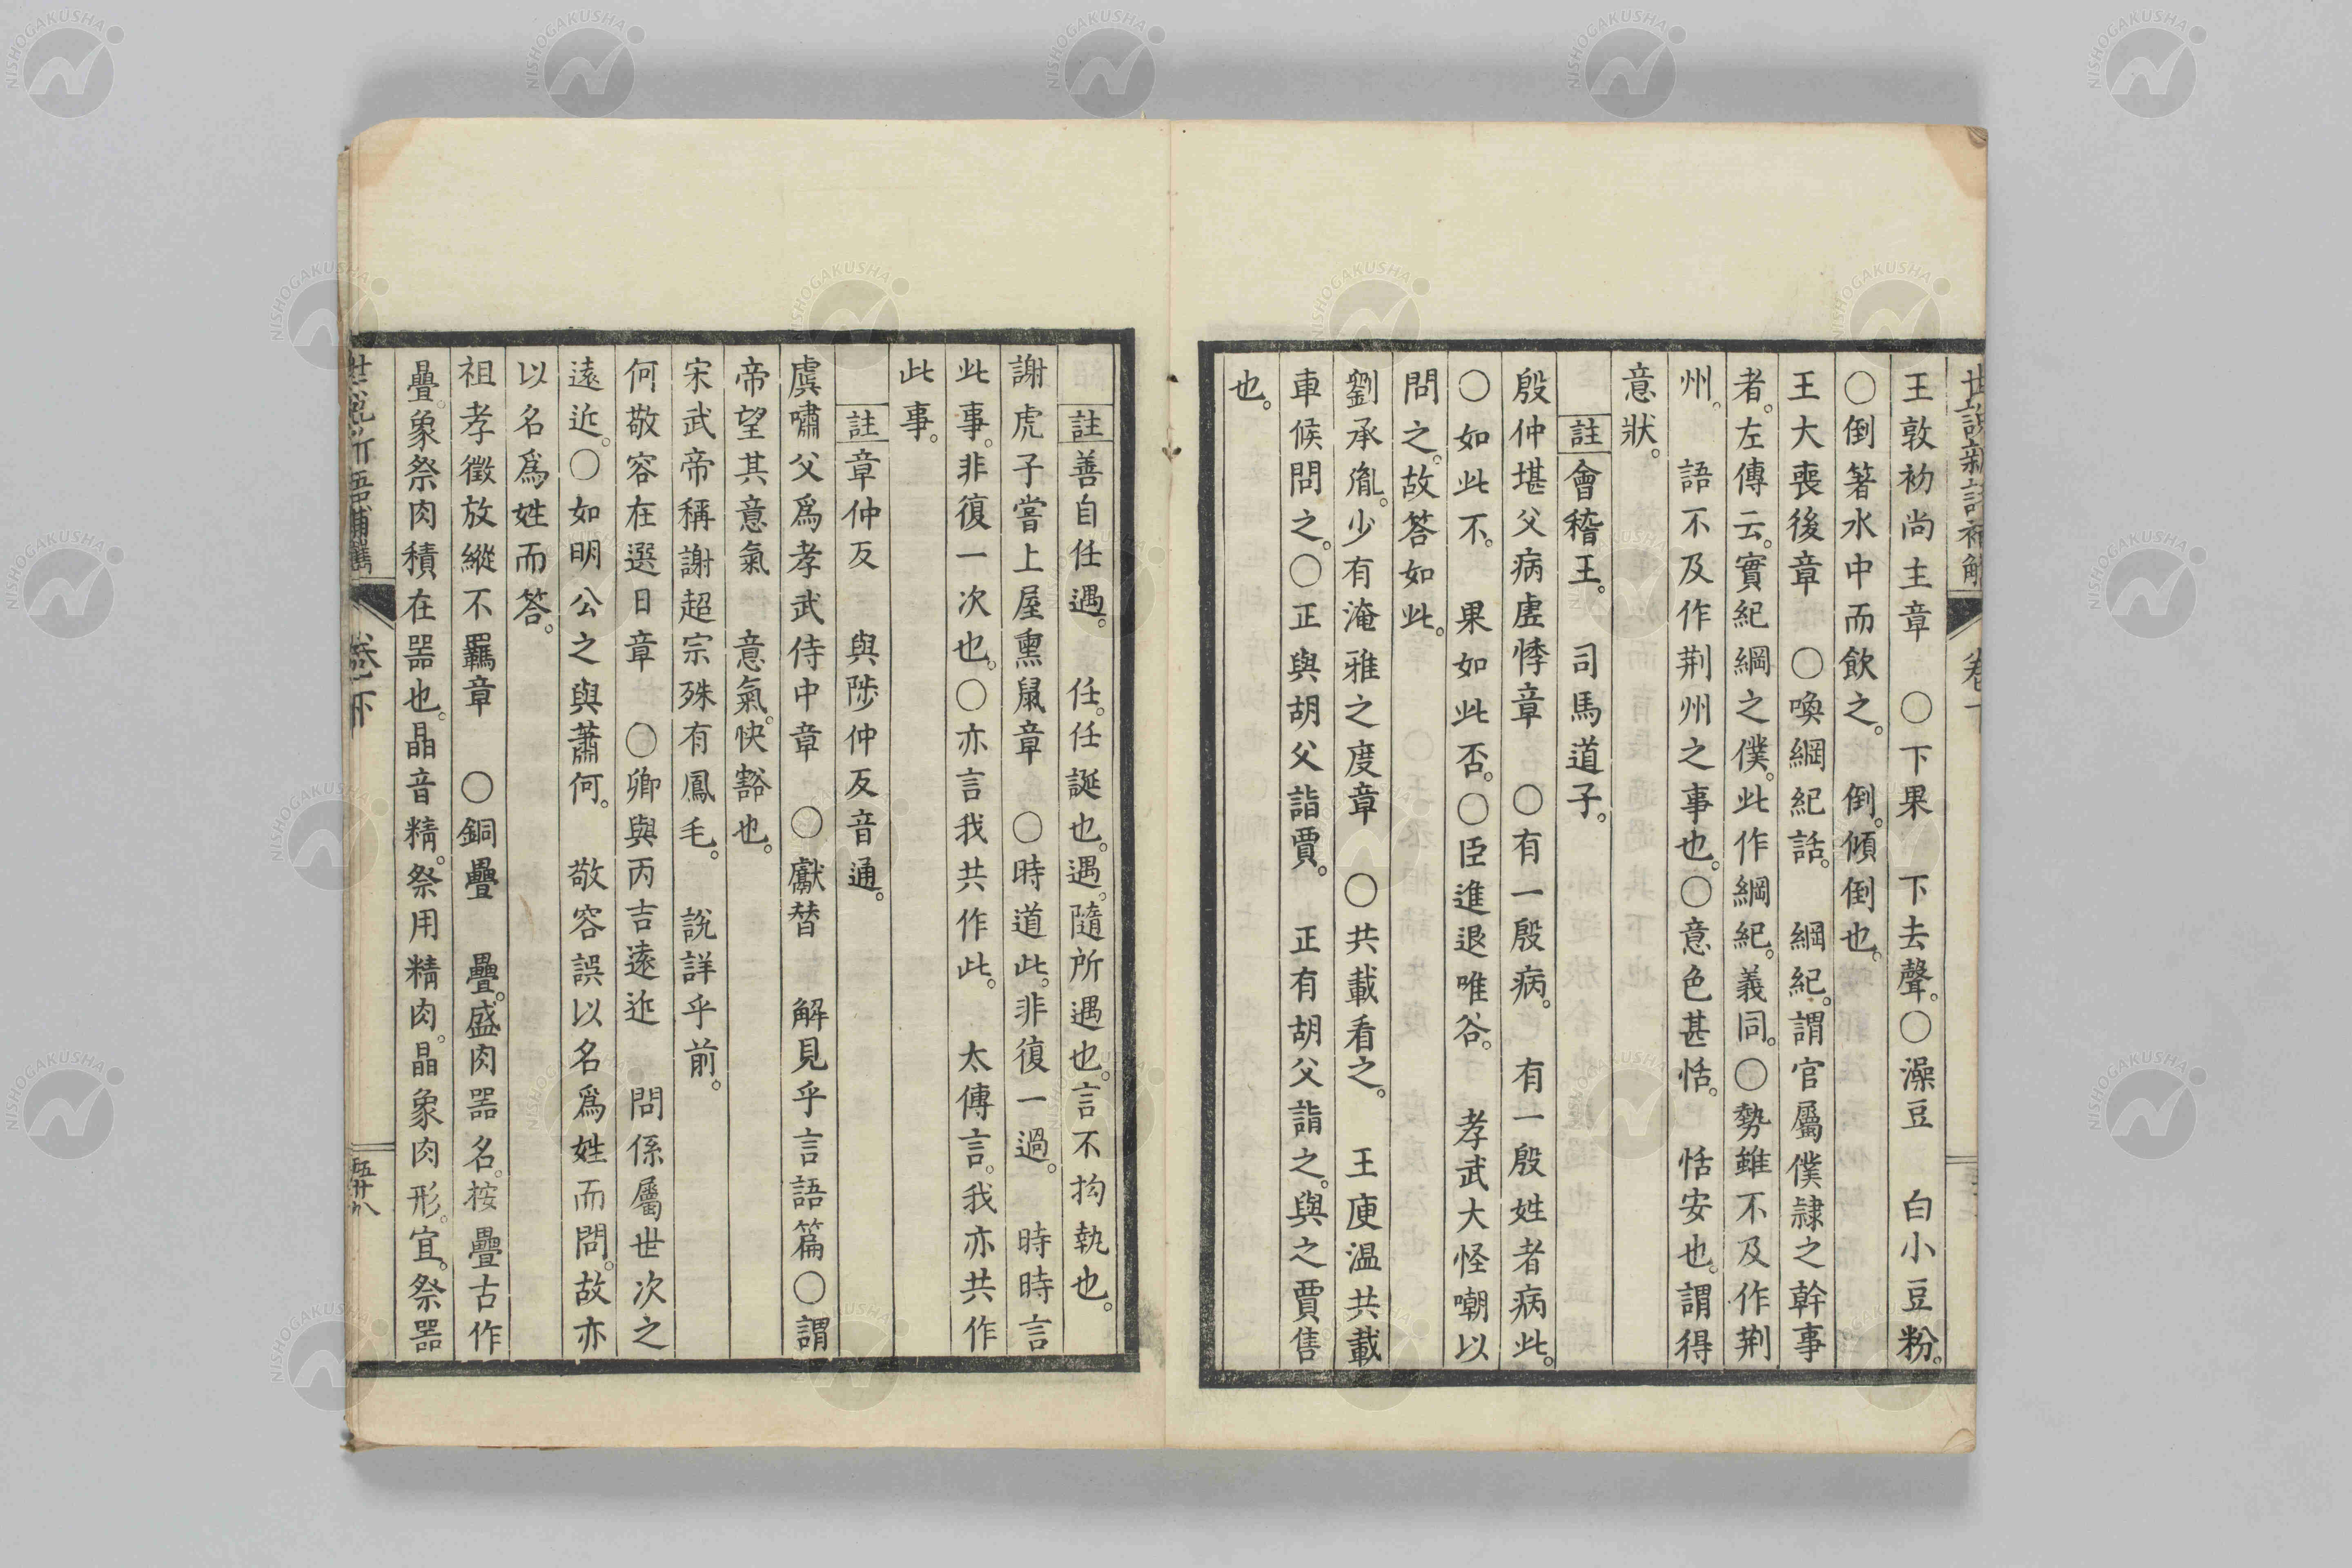 王敦初尚主章　〇下果　下去聲。〇澡豆　白小豆粉。
〇倒箸水中而飲之。　倒。傾倒也。
王大喪後章　〇喚綱紀話。　綱紀。謂官屬僕隷之幹事
者。左傳云。實紀綱之僕。此作綱紀。義同。〇勢雖不及作荆
州。　語不及作荆州之事也。〇意色甚恬。　恬安也。謂得
意狀。
註會稽王。　司馬道子。
殷仲堪父病虛悸章　〇有一殷病。　有一殷姓者病此。
〇如此不。　果如此否。〇臣進退唯谷。　孝武大怪嘲以
問之。故答如此。
劉承胤。少有淹雅之度章　〇共載看之。　王庾温共載
車候問之。〇正與胡父詣賈。　正有胡父詣之。與之賈售
也。
註善自任遇。　任。任誕也。遇。隨所遇也。言不拘執也。
謝虎子嘗上屋熏鼠章　〇時道此。非復一過。　時時言
此事。非復一次也。〇亦言我共作此。　太傅言。我亦共作
此事。
註章仲反　與陟仲反音通。
虞嘯父爲孝武侍中章　〇獻替　解見乎言語篇〇謂
帝望其意氣　意氣。快豁也。
宋武帝稱謝超宗殊有鳳毛。　說詳乎前。
何敬容在選日章　〇卿與丙吉遠近　問係屬世次之
遠近。〇如明公之與蕭何。　敬容誤以名爲姓而問。故亦
以名爲姓而答。
祖孝徵放縱不羈章　〇銅疊　疊。盛肉器名。按疊古作
疊。象祭肉積在器也。晶音精。祭用精肉。晶象肉形。宜。祭器